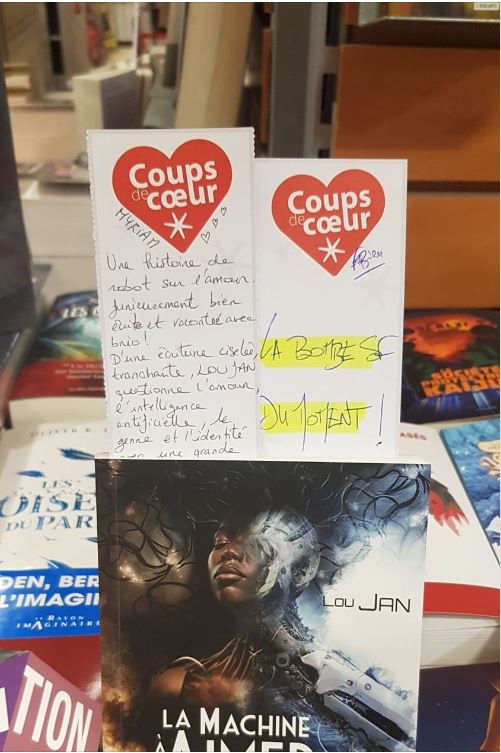 Coups
de cœur
MYRIAM
Une histoire de
robot sur l'amour.
furieusement bien
écrite et racontée avec
brio !
D'une écriture ciselée,
tranchante, LOU JAN
questionne l'amour
l'intelligence
artificielle, le
genre et l'identité
avec une grande
Coups
de cœur
LA BOMBE SF
DU MOMENT !
LOU JAN
LA MACHINE
À AIMER
LES
OISE
DU PAR
DEN, BER
L'IMAGI
LE RAYON
IMAGINAIRE
TION